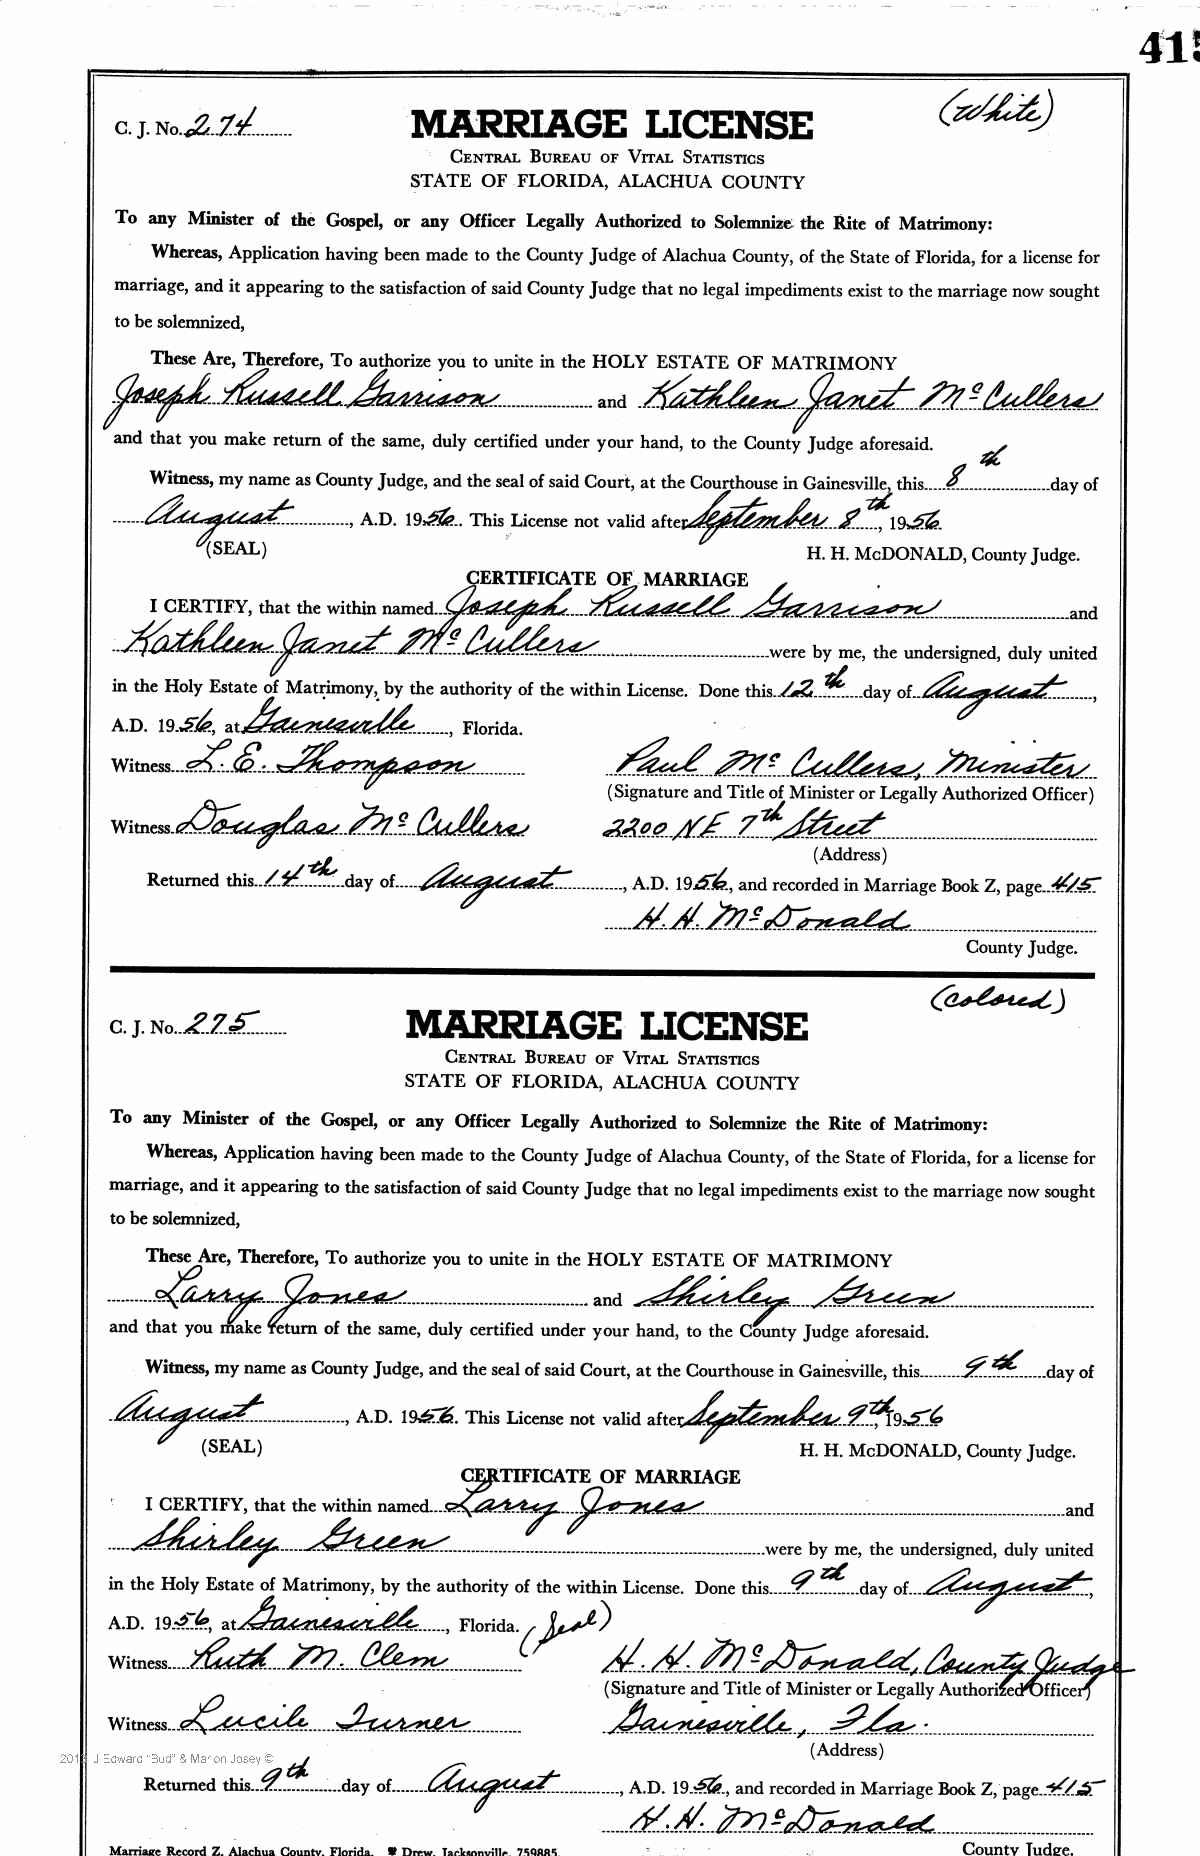 415
C. J. No. 274
(White)
MARRIAGE LICENSE
CENTRAL BUREAU OF VITAL STATISTICS
STATE OF FLORIDA, ALACHUA COUNTY
To any Minister of the Gospel, or any Officer Legally Authorized to Solemnize the Rite of Matrimony:
Whereas, Application having been made to the County Judge of Alachua County, of the State of Florida, for a license for
marriage, and it appearing to the satisfaction of said County Judge that no legal impediments exist to the marriage now sought
to be solemnized,
These Are, Therefore, To authorize you to unite in the HOLY ESTATE OF MATRIMONY
Joseph Russell Garrison and Kathleen Janet McCullers
and that you make return of the same, duly certified under your hand, to the County Judge aforesaid.
Witness, my name as County Judge, and the seal of said Court, at the Courthouse in Gainesville, this 8th day of
August, A.D. 1956. This License not valid after September 8th, 1956
(SEAL) H. H. McDONALD, County Judge.
CERTIFICATE OF MARRIAGE
I CERTIFY, that the within named Joseph Russell Garrison and
Kathleen Janet McCullers were by me, the undersigned, duly united
in the Holy Estate of Matrimony, by the authority of the within License. Done this 12th day of August,
A.D. 1956, at Gainesville, Florida.
Witness L. E. Thompson Paul McCullers, Minister
(Signature and Title of Minister or Legally Authorized Officer)
Witness Douglas McCullers 2200 NE 7th Street
(Address)
Returned this 14th day of August, A.D. 1956, and recorded in Marriage Book Z, page 415
H. H. McDonald
County Judge.
(colored)
C. J. No. 275
MARRIAGE LICENSE
CENTRAL BUREAU OF VITAL STATISTICS
STATE OF FLORIDA, ALACHUA COUNTY
To any Minister of the Gospel, or any Officer Legally Authorized to Solemnize the Rite of Matrimony:
Whereas, Application having been made to the County Judge of Alachua County, of the State of Florida, for a license for
marriage, and it appearing to the satisfaction of said County Judge that no legal impediments exist to the marriage now sought
to be solemnized,
These Are, Therefore, To authorize you to unite in the HOLY ESTATE OF MATRIMONY
Larry Jones and Shirley Green
and that you make return of the same, duly certified under your hand, to the County Judge aforesaid.
Witness, my name as County Judge, and the seal of said Court, at the Courthouse in Gainesville, this 9th day of
August, A.D. 1956. This License not valid after September 9th, 1956
(SEAL) H. H. McDONALD, County Judge.
CERTIFICATE OF MARRIAGE
I CERTIFY, that the within named Larry Jones and
Shirley Green were by me, the undersigned, duly united
in the Holy Estate of Matrimony, by the authority of the within License. Done this 9th day of August,
A.D. 1956, at Gainesville, Florida. (Seal)
Witness Ruth M. Clem H. H. McDonald, County Judge
(Signature and Title of Minister or Legally Authorized Officer)
Witness Lucile Turner Gainesville, Fla.
(Address)
J Edward "Bud" & Marion Josey ©
Returned this 9th day of August, A.D. 1956, and recorded in Marriage Book Z, page 415
H. H. McDonald
County Judge.
Marriage Record Z, Alachua County, Florida. Drew, Jacksonville, 759885.